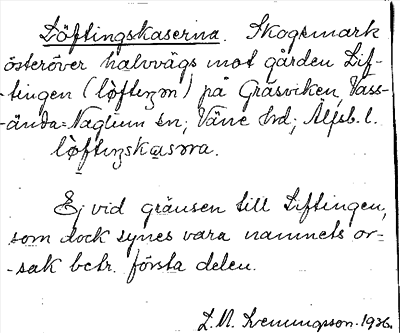 Löftingskaserna. Skogsmark
österöver halvvägs mot gården Lif-
-tingen (lòftiŋən) på Gräsviken, Väss-
-ända-Naglum sn; Väne hd; Älfsb. l.
lòftiŋskasəra.
Ej vid gränsen till Liftingen,
som dock synes vara namnets or-
-sak betr. första delen.
L. M. Svenungsson. 1936.